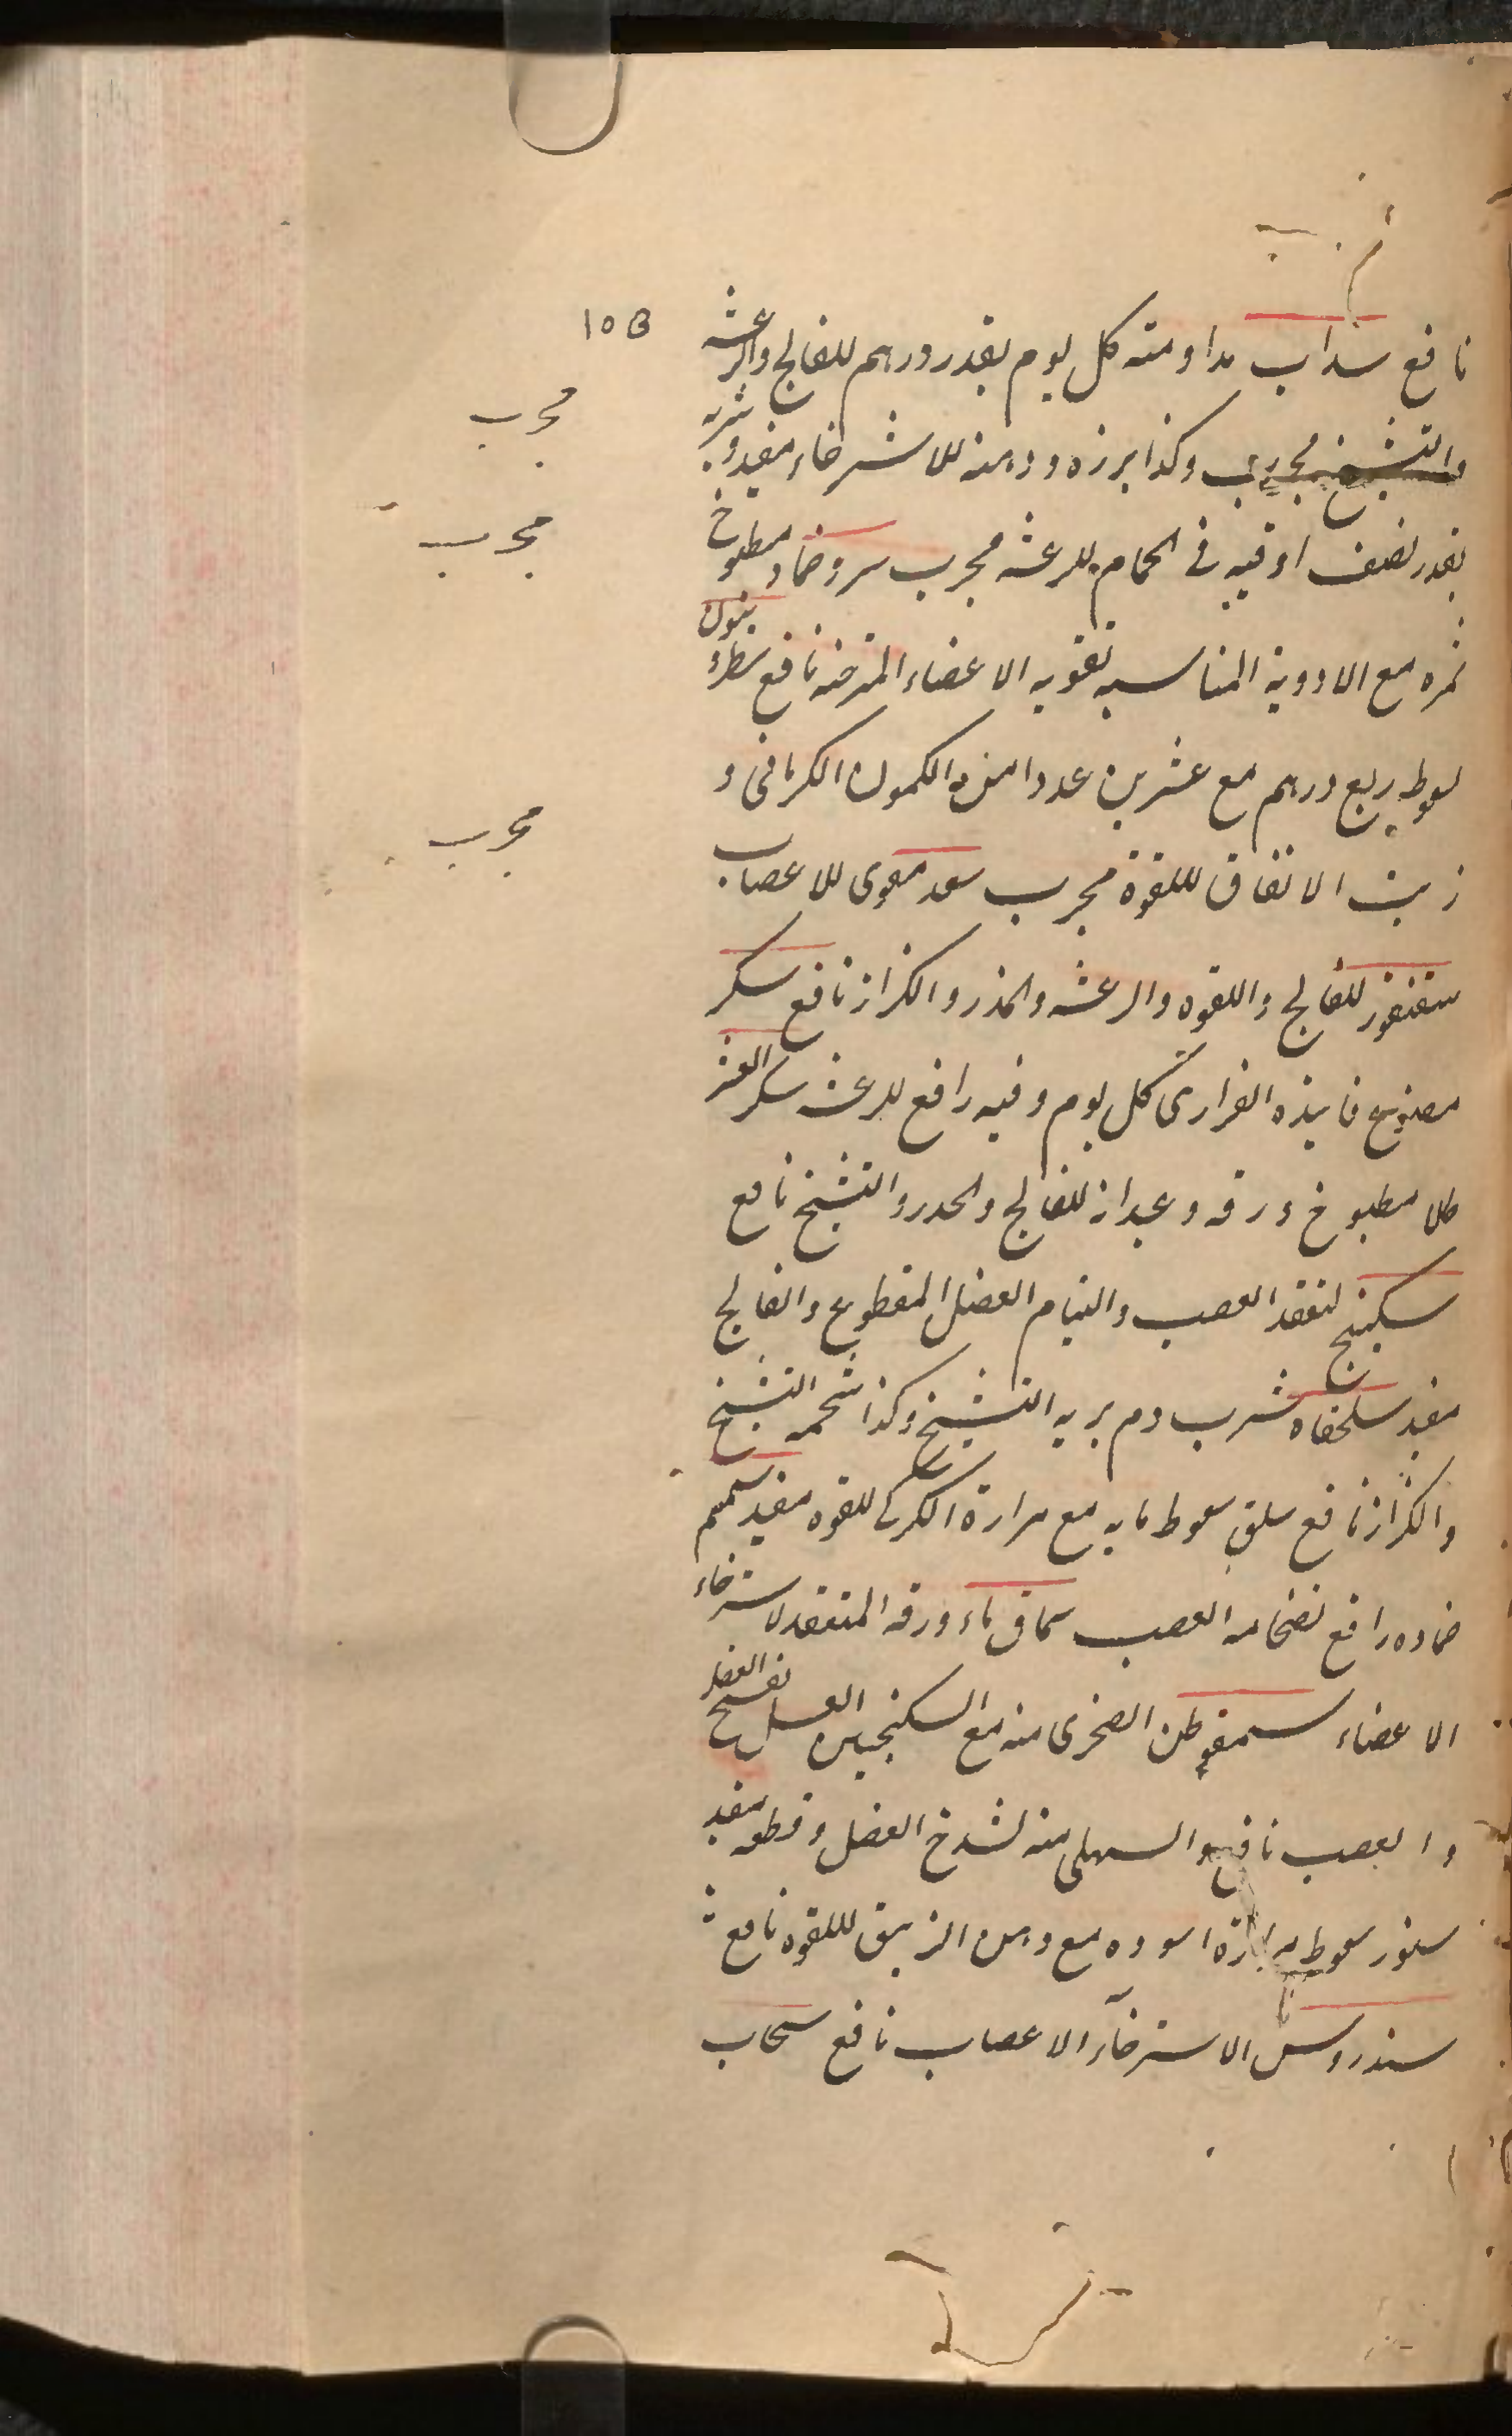 10B
نافع سداب مداومته كل يوم بقدر درهم للفالج والرعشه
والتشنج مجرب وكذا بزره ودهنه للاسترخاء مفيد وشربه
مجرب
بقدر نصف اوقيه في الحمام للرعشه مجرب سرو ضماد مطبوخ
مجرب
ثمره مع الادوية المناسبه تقويه الاعضاء المسترخيه نافع
سعوط ربع درهم مع عشرين عددا من الكمون الكرمانى و
زيت الانفاق لللقوة مجرب سعد مقوى للاعصاب
مجرب
سقنقور للفالج واللقوه والرعشه والخدر والكزاز نافع سكر
مصنوع فانيذه الفزارى كل يوم وقيه رافع للرعشه سكر العشر
طلا مطبوخ ورقه وعيدانه للفالج والخدر والتشنج نافع
سكبينج لتعقد العصب والتيام العضل المقطوع والفالج
مفيد سلحفاه شرب دم بريه التشنج وكذا شحمه التشنج
والكزاز نافع سلق سعوط مايه مع مرارة الكركى للقوه مفيد سمسم
ضماده رافع لضخامه العصب سماق ماء ورقه المنعقد لاسترخاء
الاعضاء سمفوطن الصخرى منه مع السكنجبين العسل لفسخ العضل
والعصب نافع والسهلى منه لشدخ العضل وقطعه مفيد
سنور سعوط مرارة اسوده مع دهن الزيبق لللقوه نافع
سندروس الاسترخآء الاعصاب نافع سنجاب